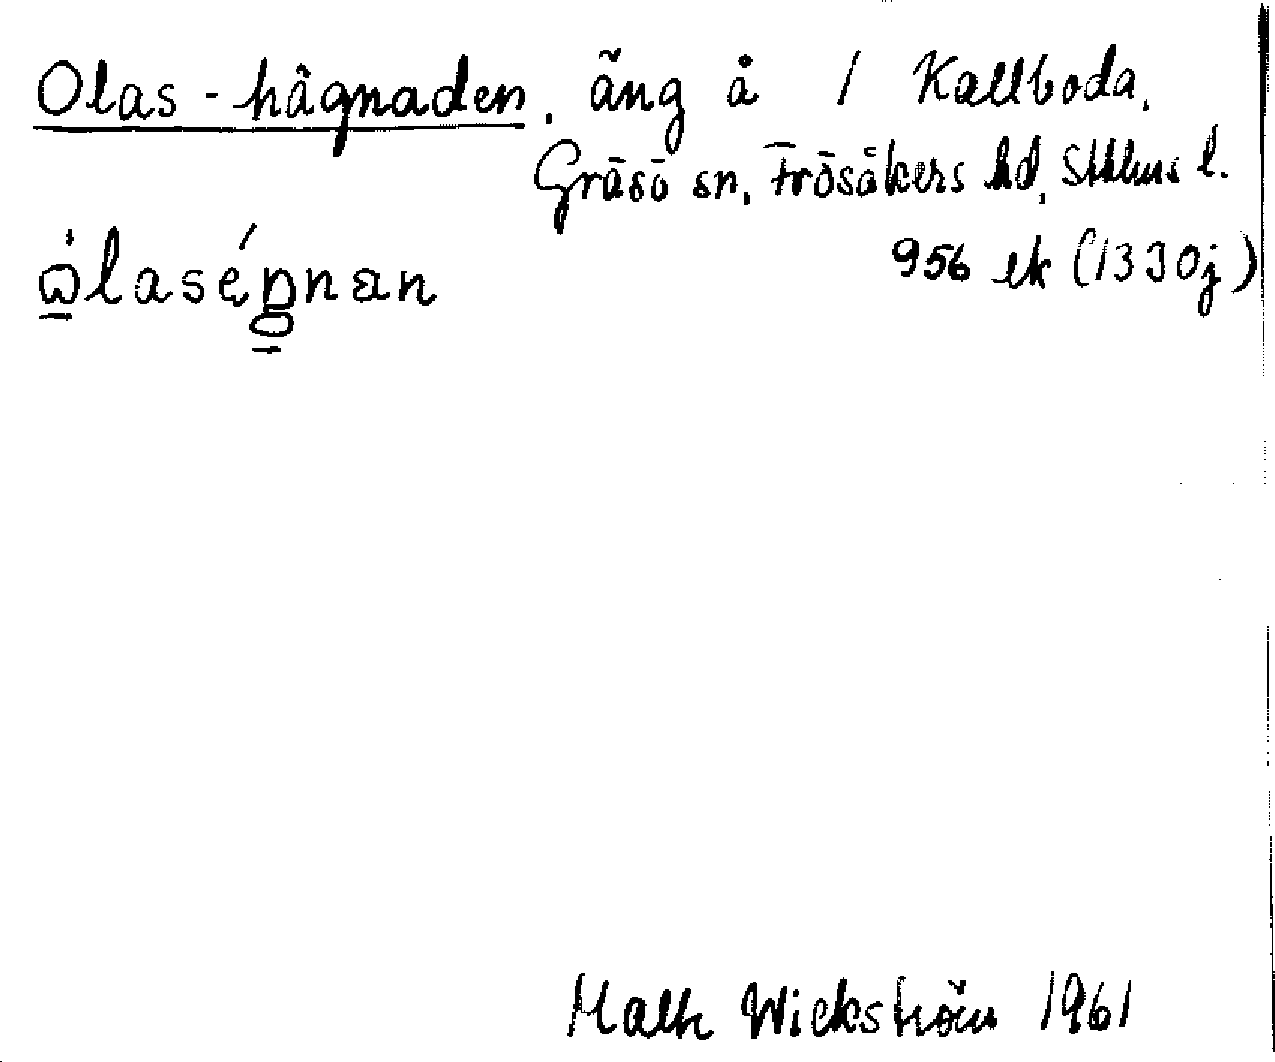 Olas-hägnaden, äng å 1 Kallboda,
Gräsö sn, Frösåkers hd, Sthlms l.
956 ek (1330j)
Wickström 1961